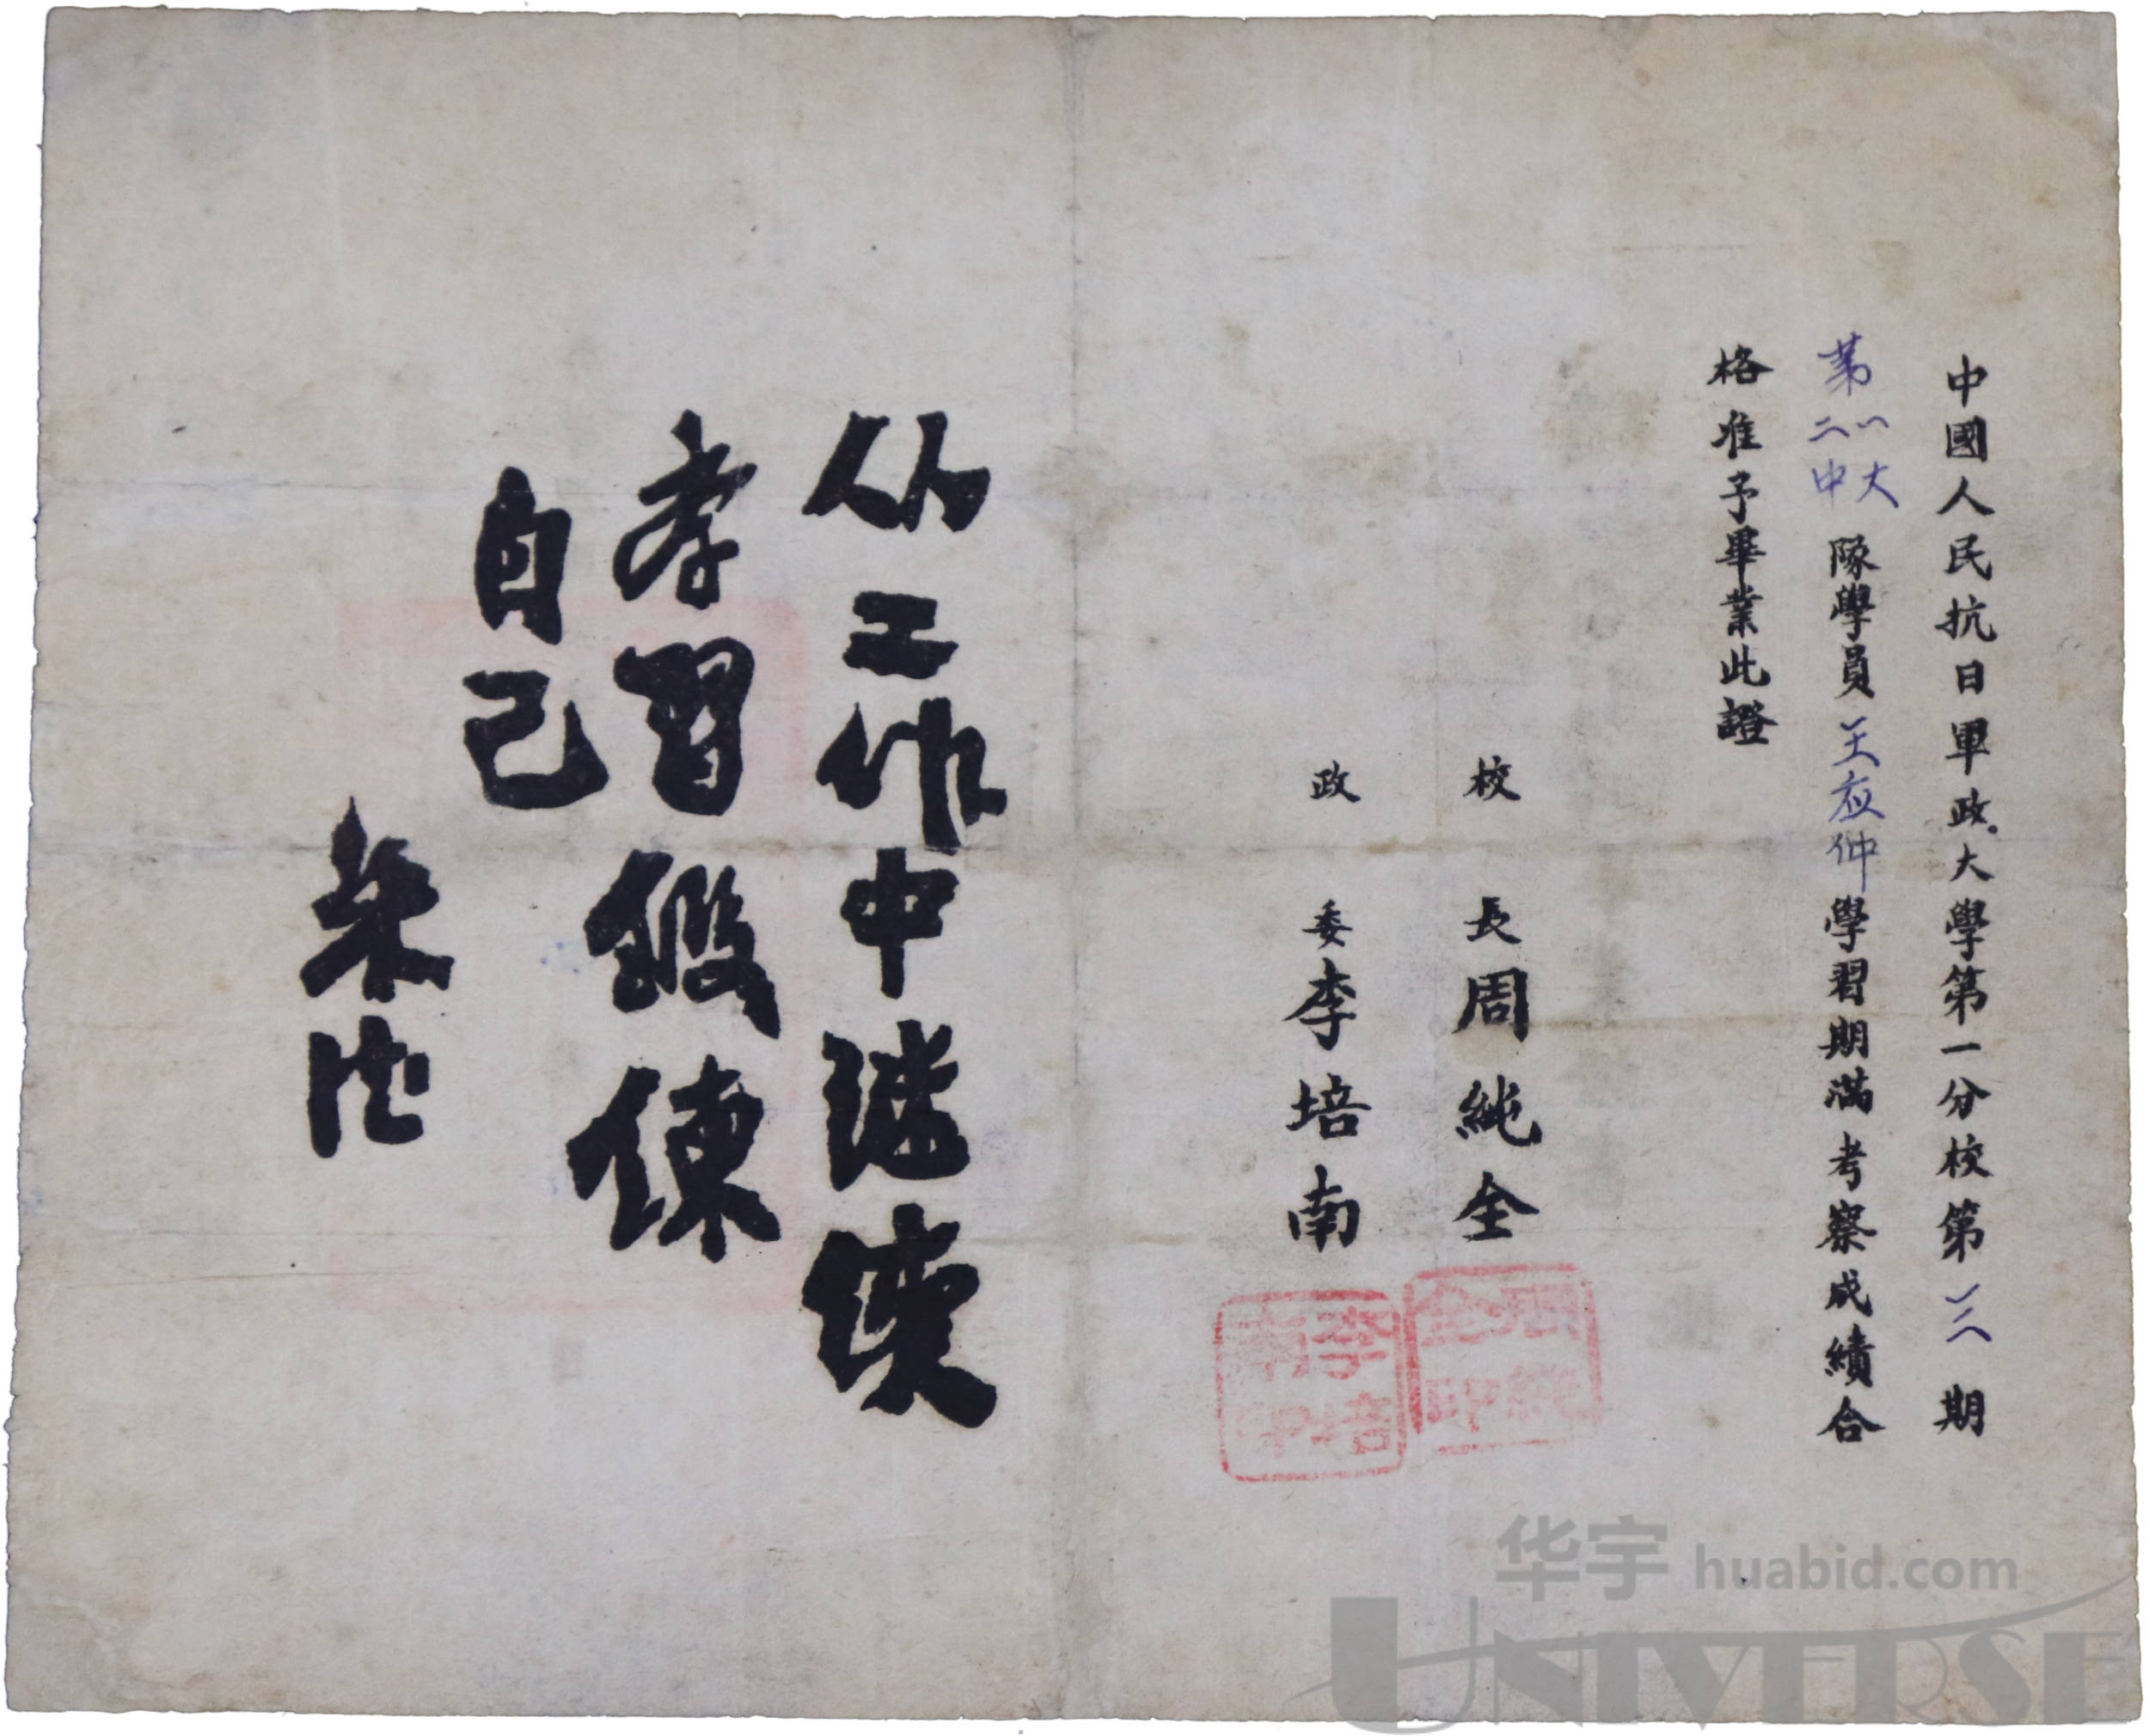 中國人民抗日軍政大學第一分校第三期
第一大
二中
隊學員王应仲學習期滿考察成績合
格准予畢業此證
校長周純全
政委李培南
周純全印
李培南印
从工作中继续
孝習鍛煉
自己
朱德
华宇 huabid.com
UNIVERSE